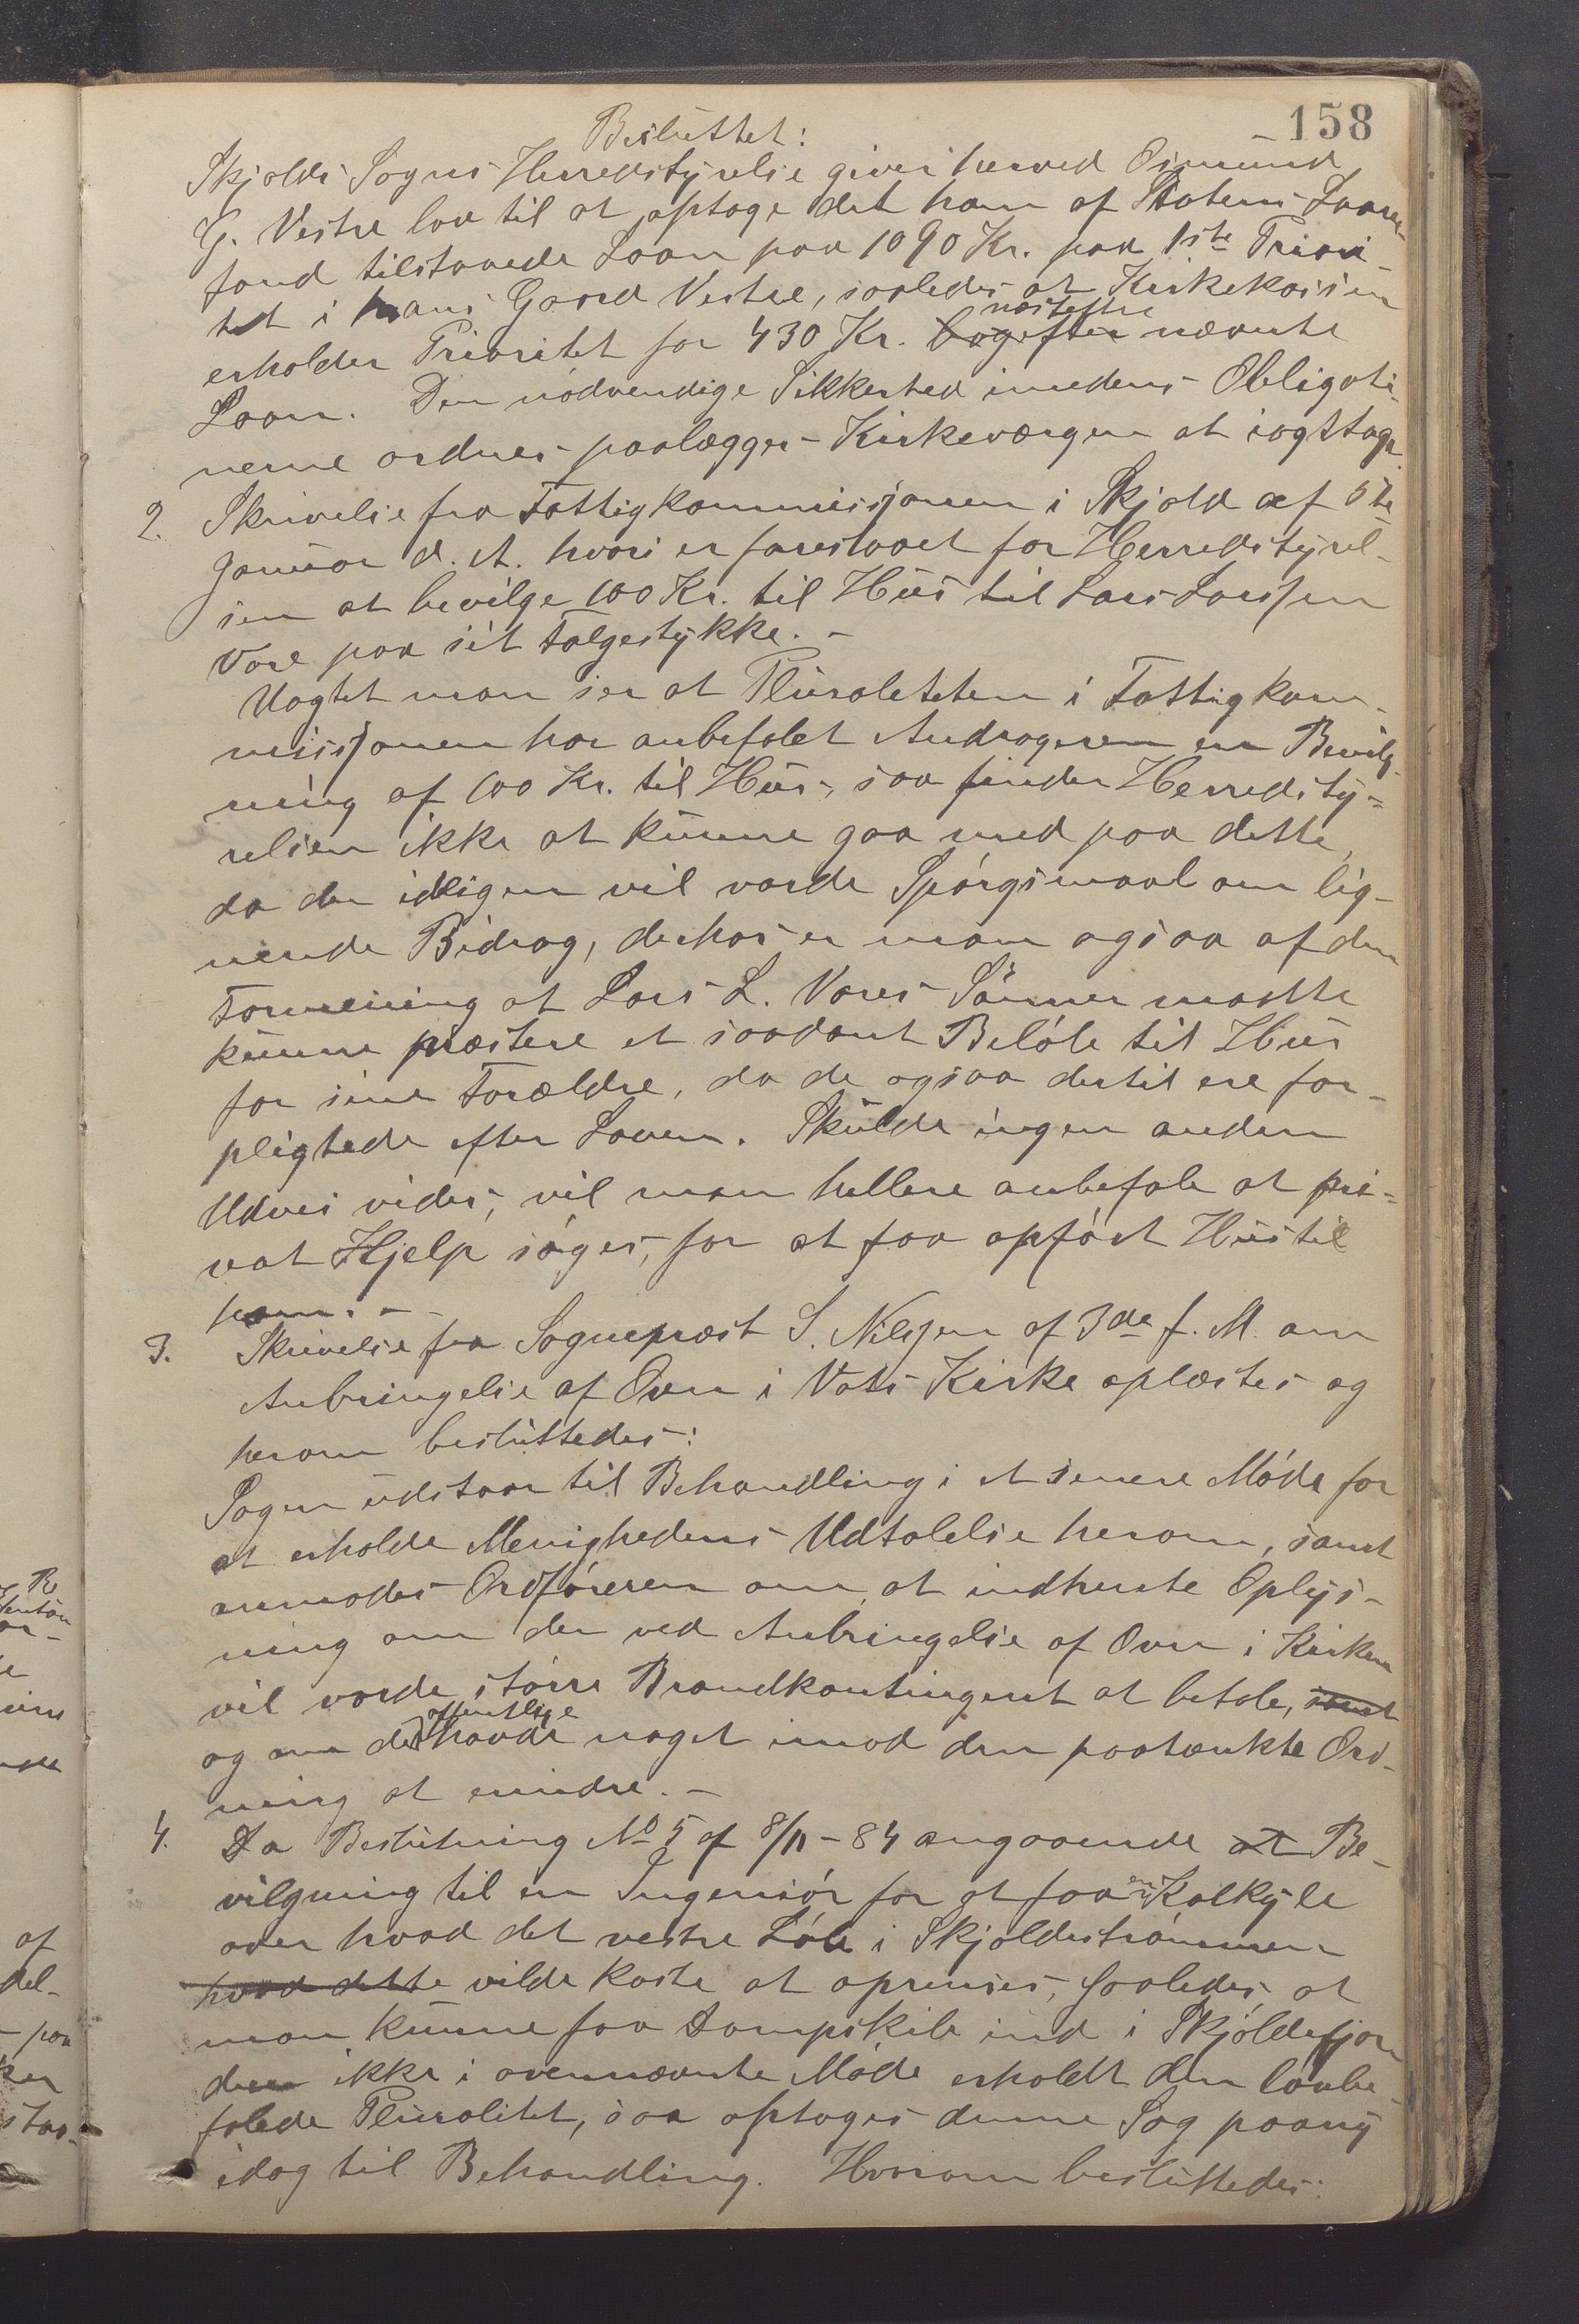 158
Besluttet:
Skjolds Sogns Herredstyrelse giver herved Osmund
G. Vestre lov til at optage det ham af Statens Laane-
fond tilstaaede Laan paa 1090 Kr. paa 1ste Priori-
tet i hans Gaard Vestre, saaledes at Kirkekassen
næstefter
erholder Prioritet for 430 Kr. bagefter nævnte
Laan. Den nødvendige Sikkerhed imedens Obligati-
nerne ordnes paalægges Kirkeværgen at iagttage.
2. Skrivelse fra Fattigkommissjonen i Skjold af 5te
Januar d. A. hvori er foreslaaet for Herredstyrel-
sen at bevilge 100 Kr. til Hus til Lars Larssen
Vare paa sit Følgestykke. -
Uagtet man ser at Pluraliteten i Fattigkom-
missjonen har anbefalet Andrageren en Bevilg-
ning af 100 Kr. til Hus, saa finder Herredsty-
relsen ikke at kunne gaa med paa dette,
da der ideligen vil vorde Spørgsmaal om lig-
nende Bidrag, derhos er man ogsaa af den
Formening at Lars L. Vares Sønner maatte
kunne præstere et saadant Beløb til Hus
for sine Forældre, da de ogsaa dertil ere for-
pligtede efter Loven. Skulde ingen anden
Udvei vides, vil man hellere anbefale at pri-
vat Hjelp søges, for at faa opført Hus til
ham. -
3. Skrivelse fra Sognepræst S. Nilssen af 3de f. M. om
Anbringelse af Ovn i Vats Kirke oplæstes og
herom besluttedes:
Sagen udstaar til Behandling i et senere Møde for
at erholde Menighedens Udtalelse herom, samt
anmodes Ordføreren om at indhente Oplys-
ning om der ved Anbringelse af Ovn i Kirken
vil vorde større Brandkontingent at betale, samt
offentlige
og om det havde noget imod den paatænkte Ord-
ning at erindre. -
4. Da Beslutning No 5 af 8/11 - 84 angaaende at Be-
vilgning til en Ingeniør for at faa en Kalkyle
over hvad det vestre Løb i Skjoldestrømmen
hvad dette vilde koste at oprenses, saaledes at
man kunne faa Dampskibe ind i Skjoldefjor-
den ikke i ovennævnte Møde erholdt den lovbe-
falede Pluralitet, saa optages denne Sag paany
idag til Behandling. Hvorom besluttedes: